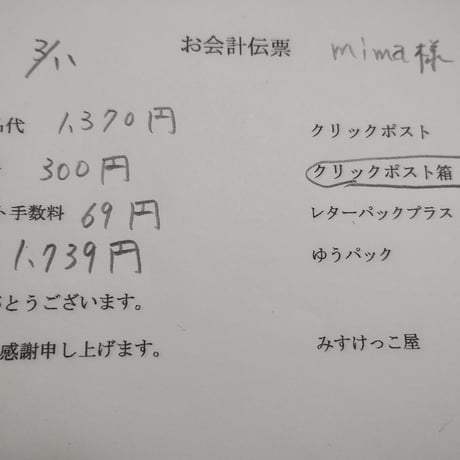 3/11 お会計伝票 mima様
代 1,370円 クリックポスト
300円 クリックポスト箱
ト手数料 69円 レターパックプラス
1,739円 ゆうパック
とうございます。
感謝申し上げます。 みすけっこ屋